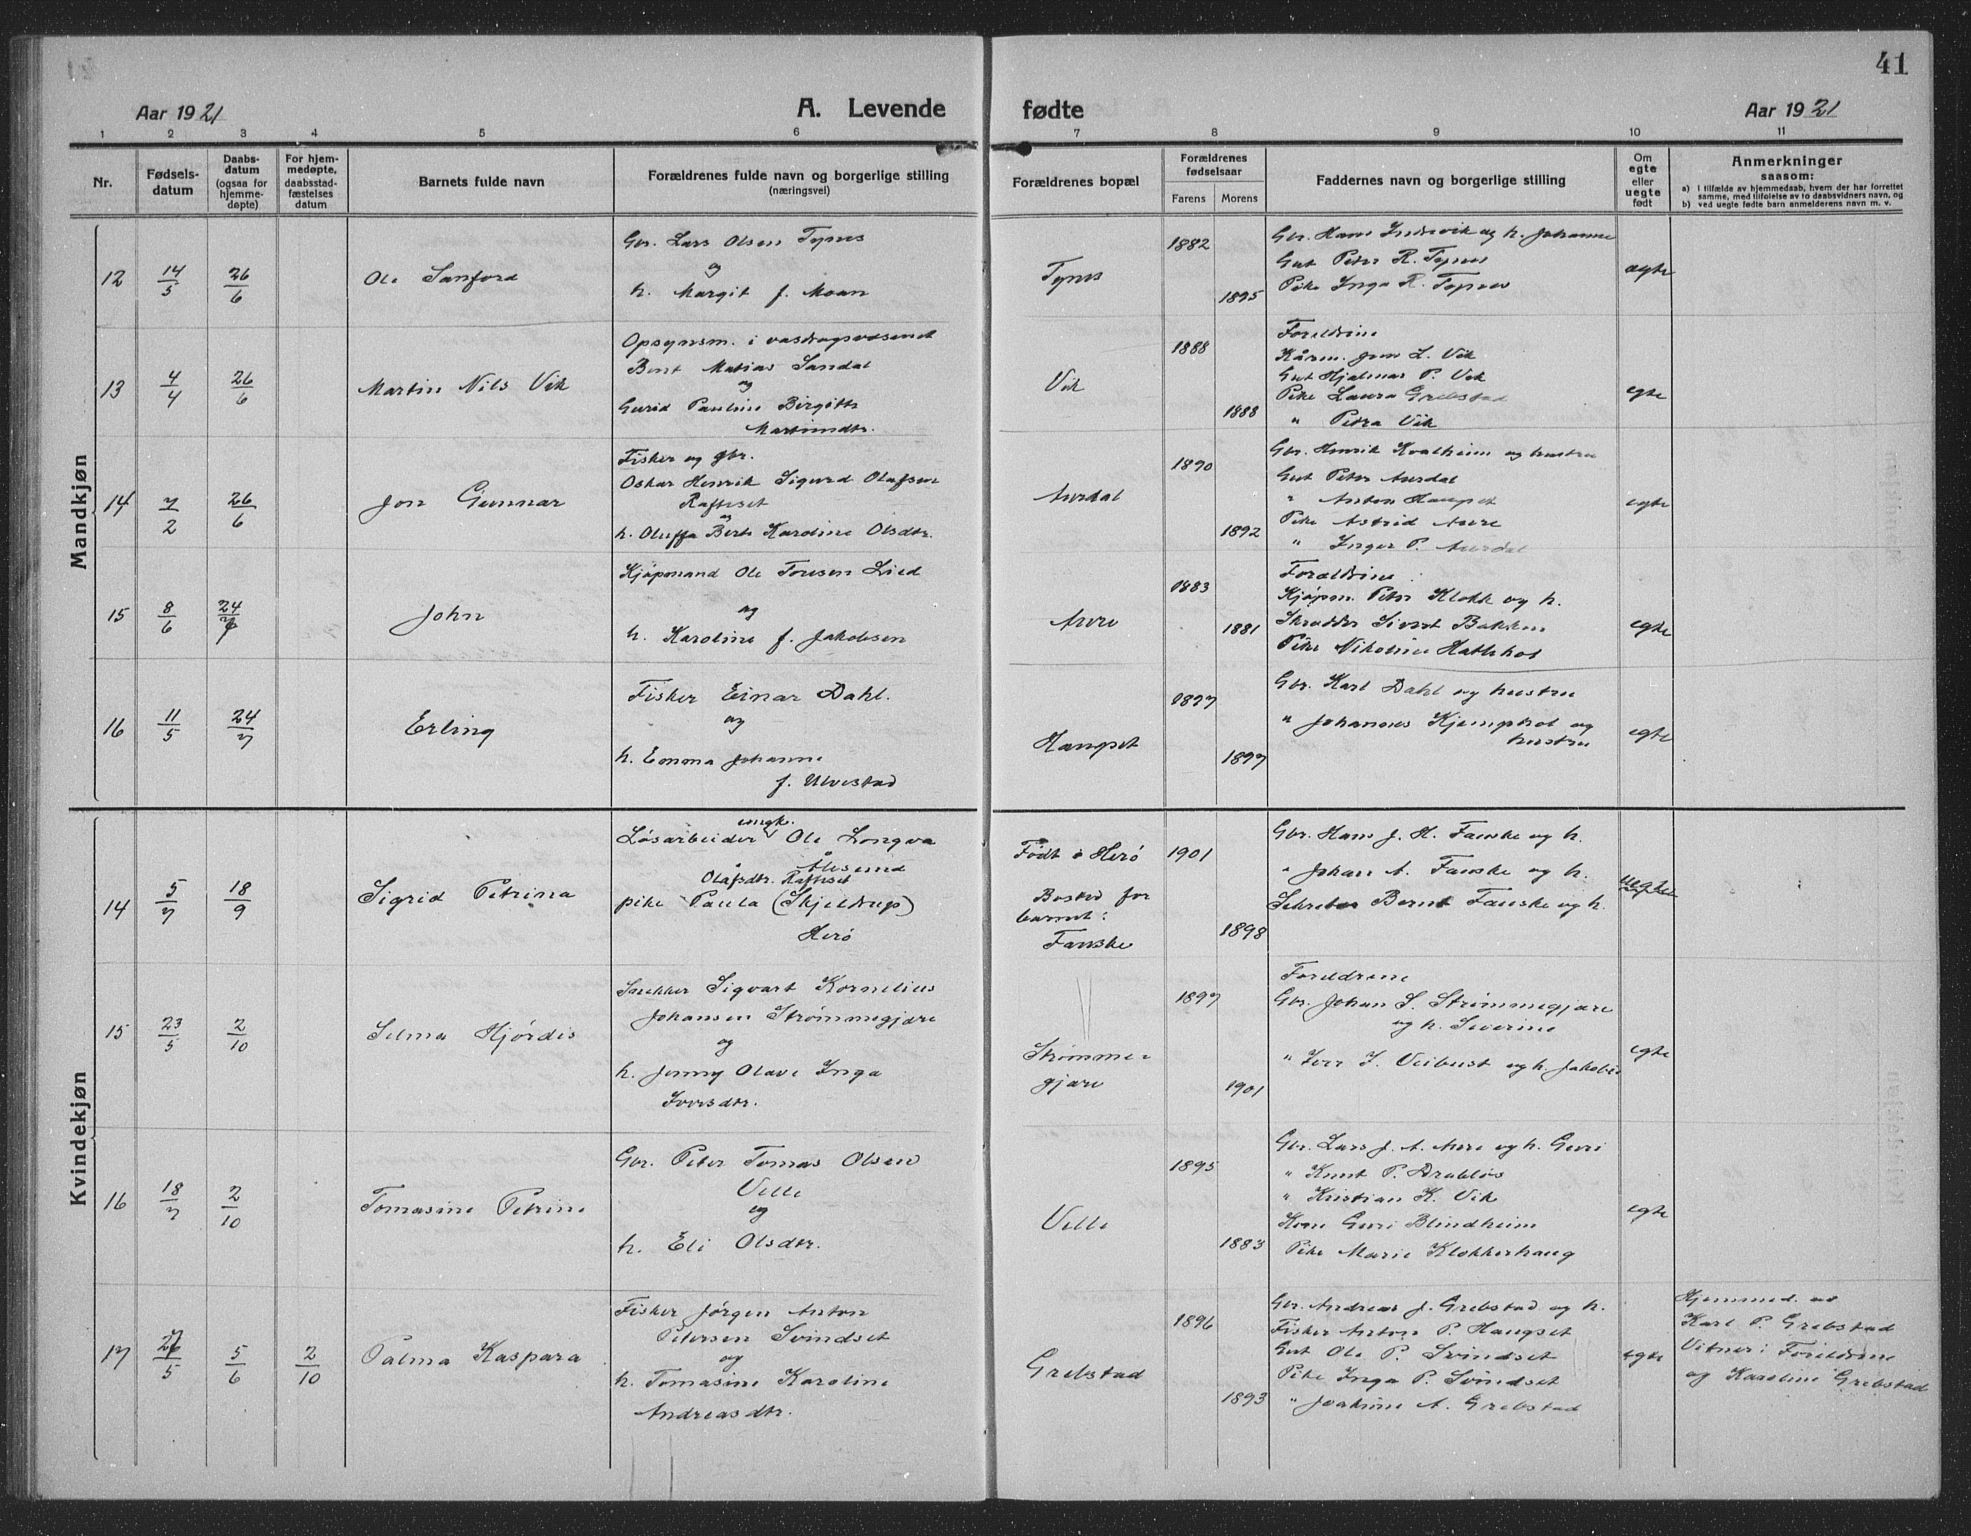 41
Aar 1921 A. Levende fødte Aar 1921
1 2 3 4 5 6 7 8 9 10 11
Nr.
Fødsels-
datum
Daabs-
datum
(ogsaa for
hjemme-
døpte)
For hjem-
medøpte,
daabsstad-
fæstelses
datum
Barnets fulde navn
Forældrenes fulde navn og borgerlige stilling
(næringsvei)
Forældrenes bopæl
Forældrenes
fødselsaar
Farens Morens
Faddernes navn og borgerlige stilling
Om
egte
eller
uegte
født
Anmerkninger
saasom:
a) I tilfælde av hjemmedaab, hvem der har forrettet
samme, med tilføielse av to daabsvidners navn, og
b) ved uegte fødte barn anmelderens navn m. v.
Mandkjøn
12 14/5 26/6 Ole Sanford
Gbr. Lars Olsen Tynes
og
h. Margit f. Moan
Tynes 1882 1895
Gbr. Hans Indrevik og h. Johanne
Gut Peter R. Tynes
Pike Inga R. Tynes
egte
13 4/4 26/6 Martin Nils Vik
Opsynsm. i vasdragsvæsenet
Bernt Matias Sandal
og
Gurid Pauline Birgitte
Martinsdtr.
Vik 1888 1888
Foreldrene
Kårm. Jon L. Vik
Gut Hjalmar P. Vik
Pike Laura Grebstad
" Petra Vik
egte
14 7/2 26/6 Jon Gunnar
Fisker og gbr.
Oskar Henrik Sigurd Olafsen
Rafteset
og
h. Oluffa Berte Karoline Olsdtr.
Aurdal 1890 1892
Gbr. Henrik Kvalheim og hustru
Gut Peter Aurdal
" Anton Haugset
Pike Astrid Aure
" Inger P. Aurdal
egte
15 8/6 24/7 John
Kjøpmand Ole Toresen Lied
og
h. Karoline f. Jakobsen
Aure 1883 1881
Foreldrene
Kjøpm. Peter Klokk og h.
Skrædder Sivert Bakken
Pike Nikoline Hatlehol
egte
16 11/5 24/7 Erling
Fisker Einar Dahl.
og
h. Emma Johanne
f. Ulvestad
Haugset 1897 1897
Gbr. Karl Dahl og hustru
" Johannes Kjemphol og
hustru
egte
Kvindekjøn
14 5/7 18/9 Sigrid Petrina
ungk.
Løsarbeider Ole Longva
Ålesund
Olafsdtr. Rafteset
pike Paula (Skjeldrup)
Herø
Født i Herø
Bosted for
barnet:
Fauske
1901 1898
Gbr. Hans J. H. Fauske og h.
" Johan A. Fauske og h.
Bernt Fauske og h.
uegte
15 23/5 2/10 Selma Hjørdis
Snekker Sigvart Kornelius
Johansen Strømmegjære
og
h. Jenny Olave Inga
Iversdtr.
Strømme-
gjære
1897 1901
Foreldrene
Gbr. Johan S. Strømmegjære
og h. Severine
" Iver I. Veibust og h. Jakobine
egte
16 18/7 2/10 Tomasine Petrine
Gbr. Peter Tomas Olsen
Velle
og
h. Eli Olsdtr.
Velle 1895 1883
Gbr. Lars J. A. Aure og h. Guri
" Knut P. Drabløs
" Kristian K. Vik
Kone Guri Blindheim
Pike Marie Klokkerhaug
egte
17 27/5 5/6 2/10 Palma Kaspara
Fisker Jørgen Anton
Petersen Svindset
og
h. Tomasine Karoline
Andreasdtr.
Grebstad 1896 1893
Gbr. Andreas J. Grebstad og h.
Fisker Anton P. Haugset
Gut Ole P. Svindset
Pike Inga P. Svindset
" Joakime A. Grebstad
egte
Hjemmed. av
Karl P. Grebstad
Vitner: Foreldrene
og Karoline Grebstad